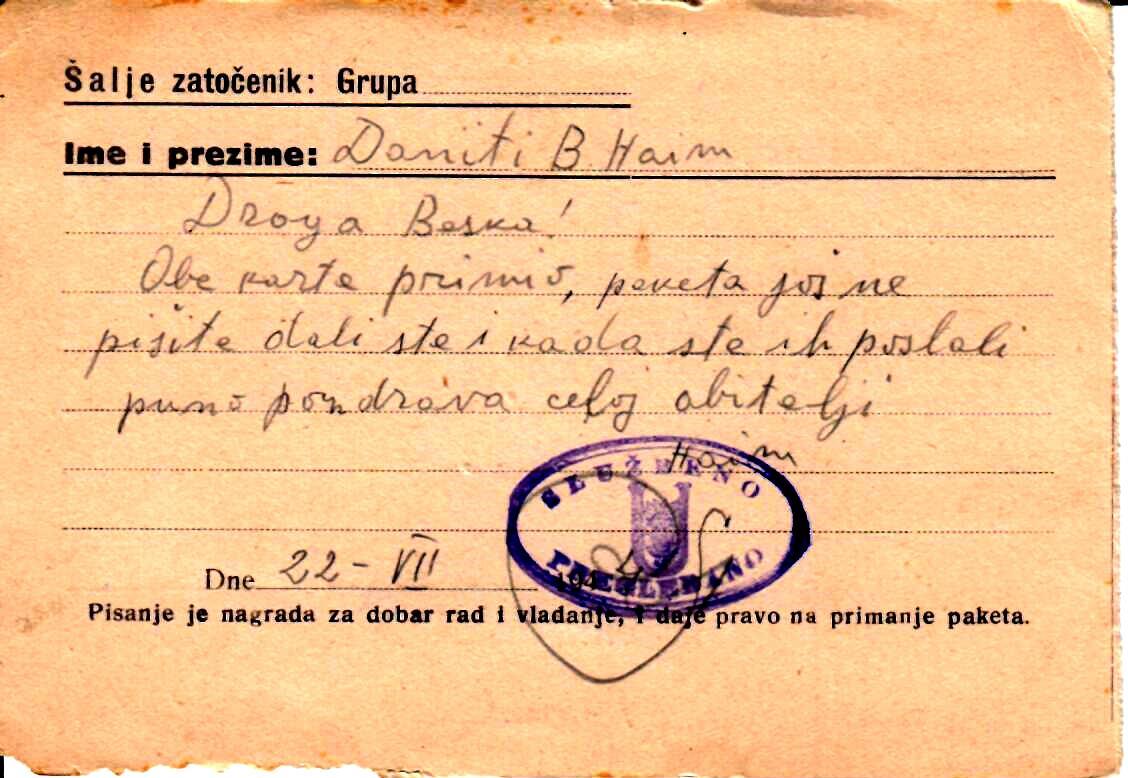 Šalje zatočenik: Grupa
Ime i prezime: Daniti B Haim
Draga Beska!
Obe karte primio, paketa još ne
pišite dali ste i kada ste ih poslali
puno pozdrava celoj obitelji
Haim
SLUŽBENO
PREGLEDANO
Dne 22-VII 194
Pisanje je nagrada za dobar rad i vladanje, i daje pravo na primanje paketa.